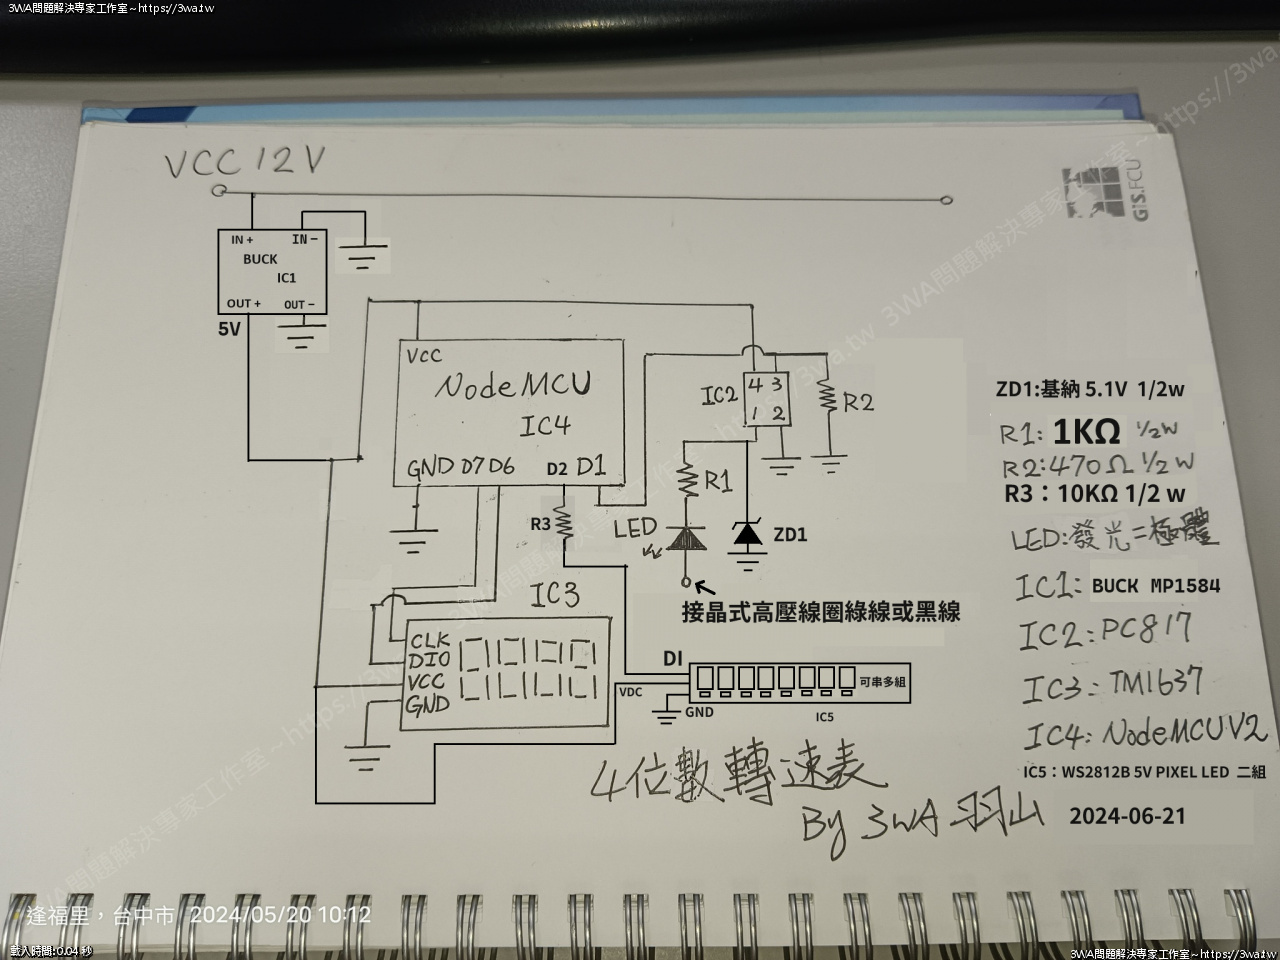 3WA問題解決專家工作室~https://3wa.tw
VCC 12V
GIS.FCU
IN + IN −
BUCK
IC1
OUT + OUT −
5V
VCC
NodeMCU
IC4
GND D7 D6 D2 D1
IC2
4 3
1 2
R2
R1
R3
LED
ZD1
接晶式高壓線圈綠線或黑線
IC3
CLK
DIO
VCC
GND
DI
VDC
GND
可串多組
IC5
ZD1:基納 5.1V 1/2w
R1: 1KΩ 1/2W
R2:470Ω 1/2W
R3:10KΩ 1/2 w
LED:發光二極體
IC1: BUCK MP1584
IC2: PC817
IC3: TM1637
IC4: NodeMCU V2
IC5:WS2812B 5V PIXEL LED 二組
4位數轉速表
By 3WA 羽山
2024-06-21
3WA問題解決專家工作室~https://3wa.tw 3WA問題解決專家工作室~https://3wa.tw
逢福里,台中市 2024/05/20 10:12
載入時間:0.04 秒
3WA問題解決專家工作室~https://3wa.tw